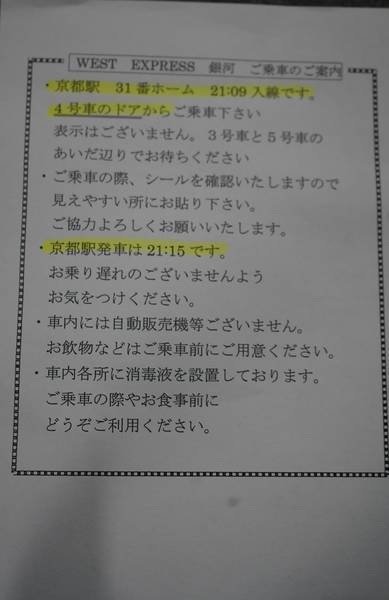 WEST EXPRESS 銀河 ご乗車のご案内
・京都駅 31番ホーム 21:09入線です。
４号車のドアからご乗車下さい
表示はございません。３号車と５号車の
あいだ辺りでお待ちください
・ご乗車の際、シールを確認いたしますので
見えやすい所にお貼り下さい。
ご協力よろしくお願いいたします。
・京都駅発車は21:15です。
お乗り遅れのございませんよう
お気をつけください。
・車内には自動販売機等ございません。
お飲物などはご乗車前にご用意ください。
・車内各所に消毒液を設置しております。
ご乗車の際やお食事前に
どうぞご利用ください。